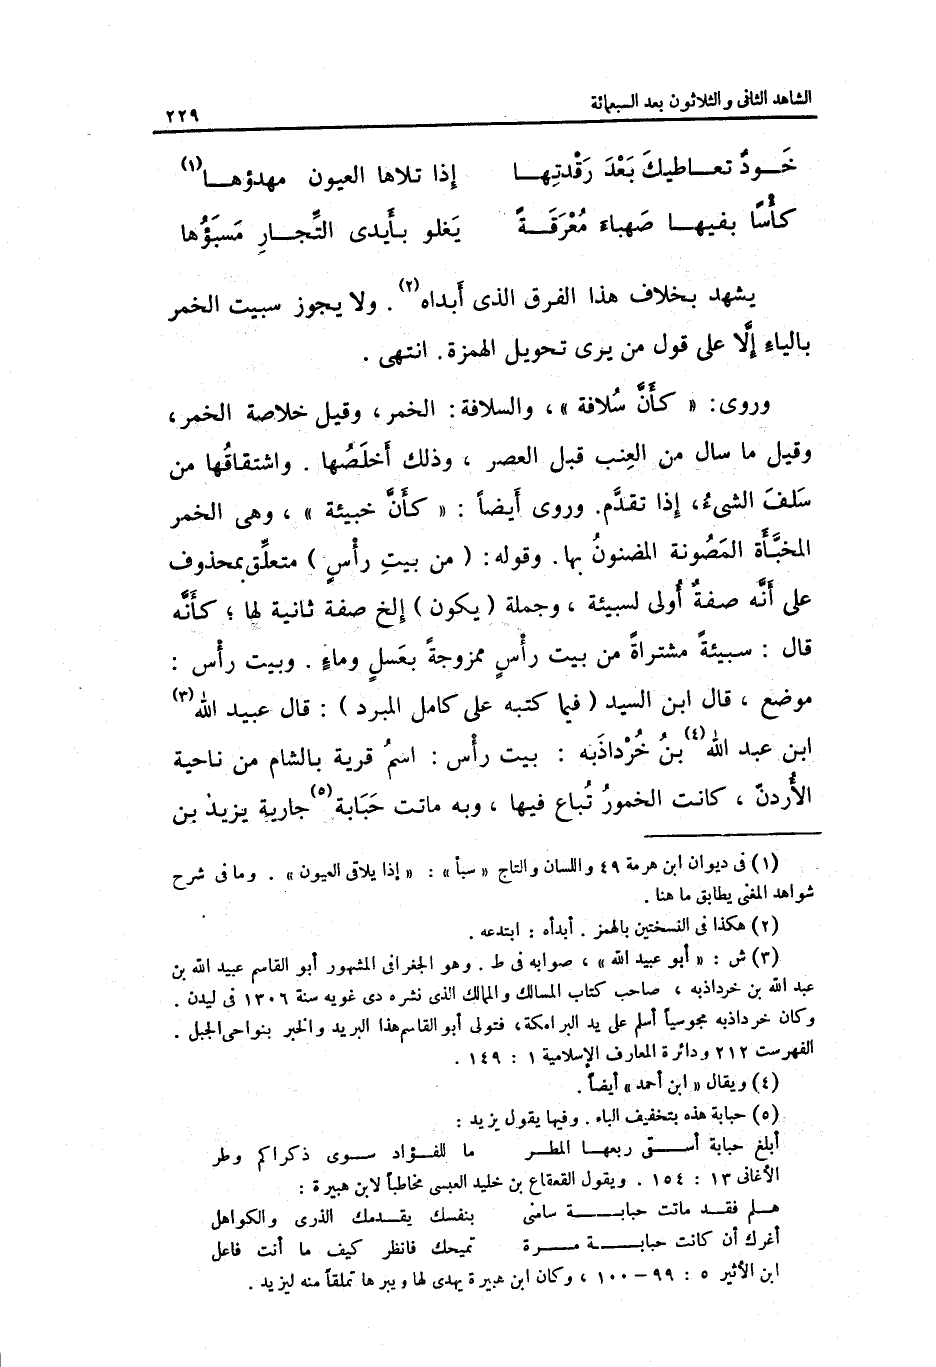 الشاهد الثانى والثلاثون بعد السبعمائة ٢٢٩
خَــودٌ تعــاطيكَ بَعْدَ رَقْدتِهــا إذا تلاها العيون مهدؤهــا(١)
كأْسًا بفيهــا صَهباءَ مُعْرَقَــةً يَغلو بـأَيدى التِّجــارِ مَسبَؤُها
يشهد بخلاف هذا الفرق الذى أَبداه(٢) . ولا يجوز سبيت الخمر
بالياءِ إلَّا على قول من يرى تحويل الهمزة . انتهى .
وروى: « كأَنَّ سُلافة » ، والسلافة: الخمر ، وقيل خلاصة الخمر ،
وقيل ما سال من العِنب قبل العصر ، وذلك أَخلَصُها . واشتقاقُها من
سَلفَ الشىءُ، إذا تقدَّم. وروى أَيضاً : « كأَنَّ خبيئة » ، وهى الخمر
المخبَّأَة المَصُونة المضنونُ بها. وقوله: ( من بيتِ رأْسٍ ) متعلِّق بمحذوف
على أَنَّه صفةٌ أُولى لسبيئة ، وجملة ( يكون ) إلخ صفة ثانية لها ؛ كأَنَّه
قال : سبيئةً مشتراةً من بيت رأْسٍ ممزوجةً بعَسلٍ وماءٍ . وبيت رأْس :
موضع ، قال ابن السيد ( فيما كتبه على كامل المبرد ) : قال عبيد الله(٣)
ابن عبد الله(٤) بنُ خُرْداذَبه : بيت رأْس : اسمُ قرية بالشام من ناحية
الأُردنّ ، كانت الخمورُ تُباع فيها ، وبه ماتت حَبَابة(٥) جارية يزيد بن
(١) فى ديوان ابن هرمة ٤٩ واللسان والتاج « سبأ » : « إذا يلاقى العيون » . وما فى شرح
شواهد المغنى يطابق ما هنا .
(٢) هكذا فى النسختين بالهمز . أبدأه : ابتدعه .
(٣) ش : « أبو عبيد الله » ، صوابه فى ط . وهو الجغرافى المشهور أبو القاسم عبيد الله بن
عبد الله بن خرداذبه ، صاحب كتاب المسالك والممالك الذى نشره دى غويه سنة ١٣٠٦ فى ليدن .
وكان خرداذبه مجوسياً أسلم على يد البرامكة ، فتولى أبو القاسم هذا البريد والخبر بنواحى الجبل .
الفهرست ٢١٢ ودائرة المعارف الإسلامية ١ : ١٤٩ .
(٤) ويقال « ابن أحمد » أيضاً .
(٥) حبابة هذه بتخفيف الباء . وفيها يقول يزيد :
أبلغ حبابة أســـق ربعهــا المطــر ما للفــؤاد ســوى ذكراكم وطر
الأغانى ١٣ : ١٥٤ . ويقول القعقاع بن خليد العبسى مخاطباً لابن هبيرة :
هلــم فقــد ماتت حبابــــة سامنى بنفسك يقــدمك الذرى والكواهل
أغرك أن كانت حبابــــة مـــرة تميحك فانظر كيف ما أنت فاعل
ابن الأثير ٥ : ٩٩ – ١٠٠ ، وكان ابن هبيرة يهدى لها ويبرها تملقاً منه ليزيد .